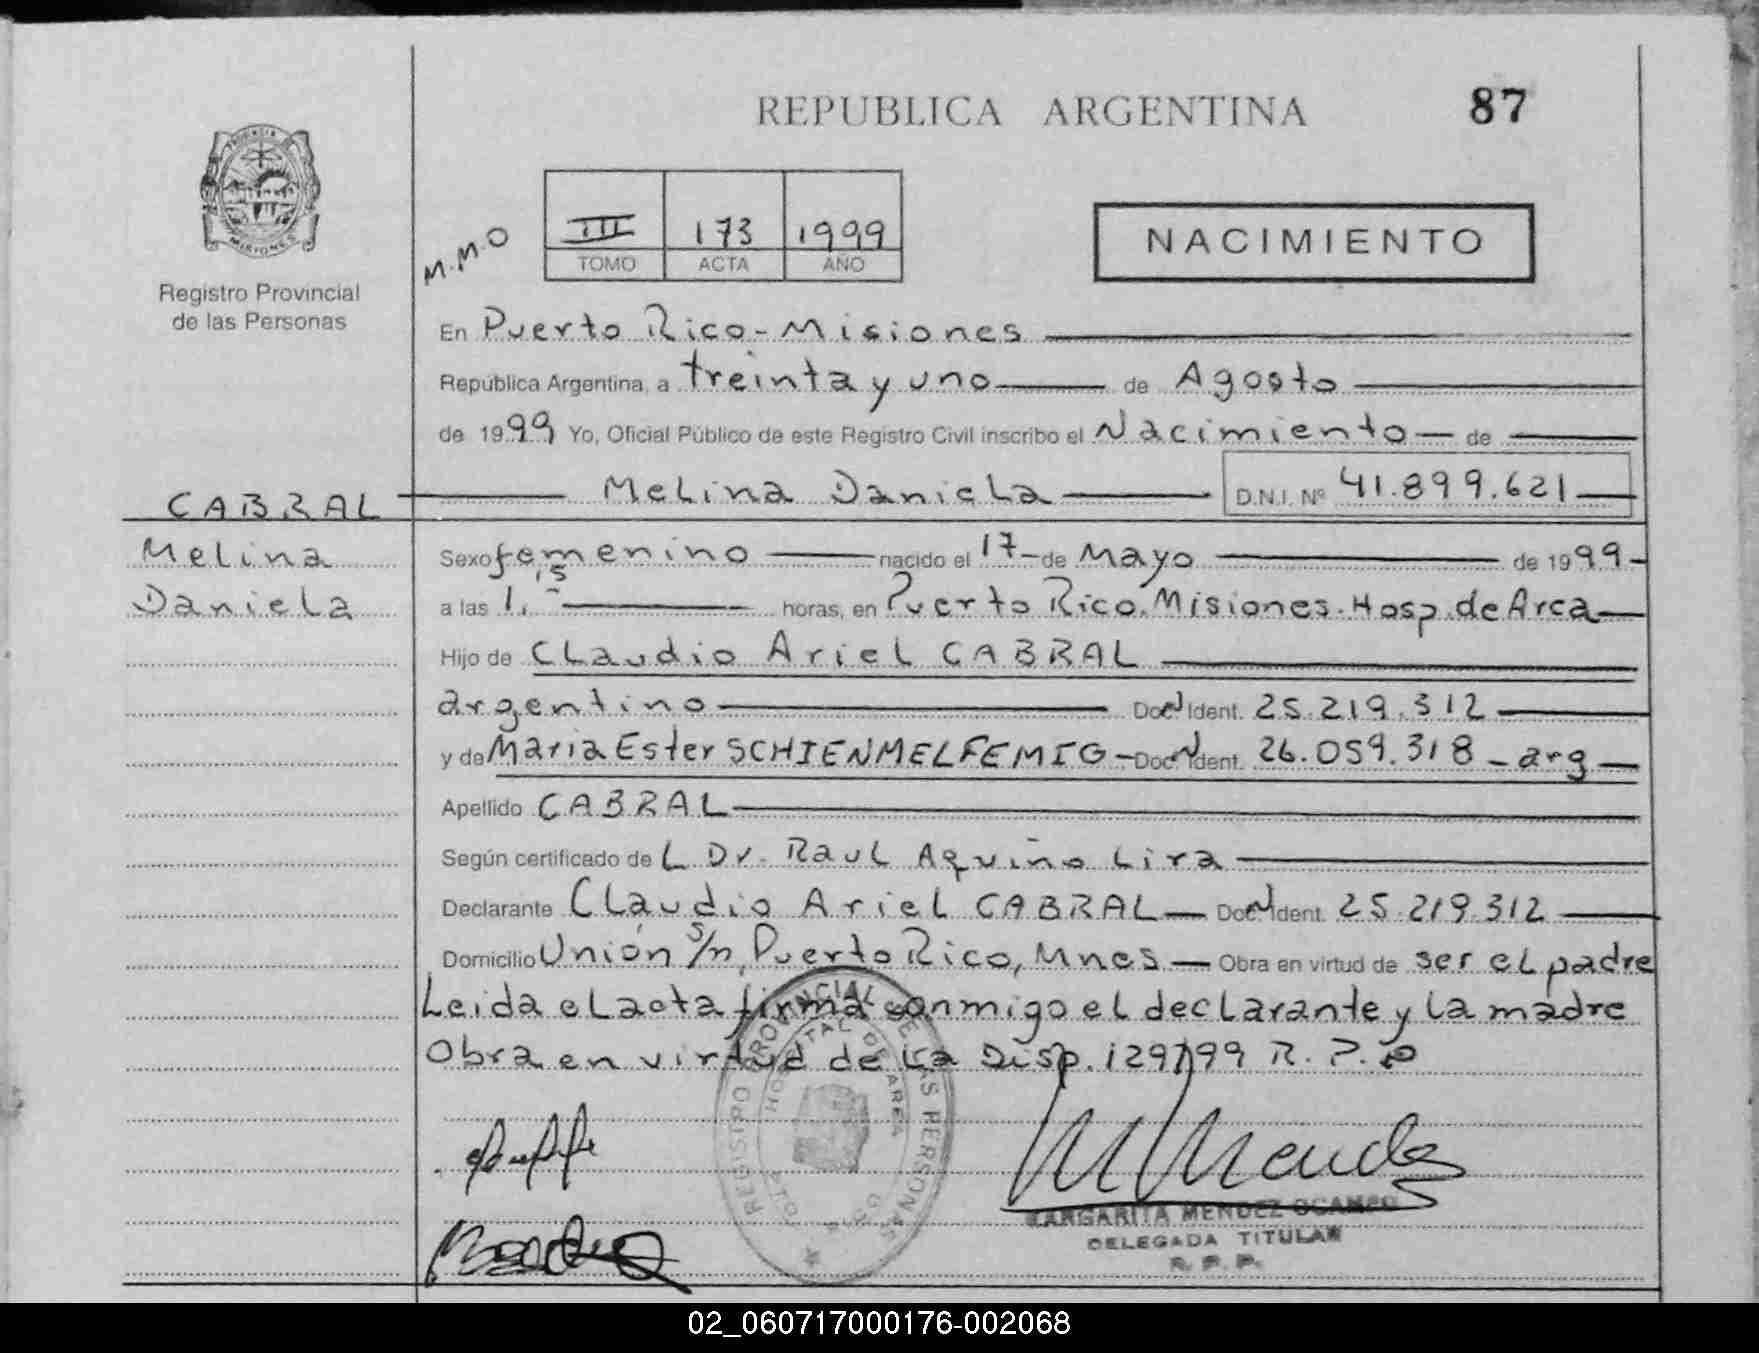 REPUBLICA ARGENTINA
87
PROVINCIA
MISIONES
Registro Provincial
de las Personas
M.M.O
III 173 1999
TOMO ACTA AÑO
NACIMIENTO
En Puerto Rico - Misiones
República Argentina, a treinta y uno de Agosto
de 1999 Yo, Oficial Público de este Registro Civil inscribo el Nacimiento de
CABRAL Melina Daniela D.N.I. Nº 41.899.621
Melina
Daniela
Sexo femenino nacido el 17 de Mayo de 1999
a las 1,15 horas, en Puerto Rico. Misiones. Hosp. de Area
Hijo de Claudio Ariel CABRAL
argentino Doc N Ident. 25.219.312
y de Maria Ester SCHIENMELFEMIG - Doc N Ident. 26.059.318 - arg
Apellido CABRAL
Según certificado de L Dr. Raul Aquino Lira
Declarante Claudio Ariel CABRAL Doc N Ident. 25.219.312
Domicilio Unión s/n, Puerto Rico, Mnes Obra en virtud de ser el padre
Leida el acta firma conmigo el declarante y la madre
Obra en virtud de la Disp. 1297/99 R. P. P
REGISTRO PROVINCIAL DE LAS PERSONAS
HOSPITAL DE AREA
PTO.
MARGARITA MENDEZ OCAMPO
DELEGADA TITULAR
R. P. P.
02_060717000176-002068